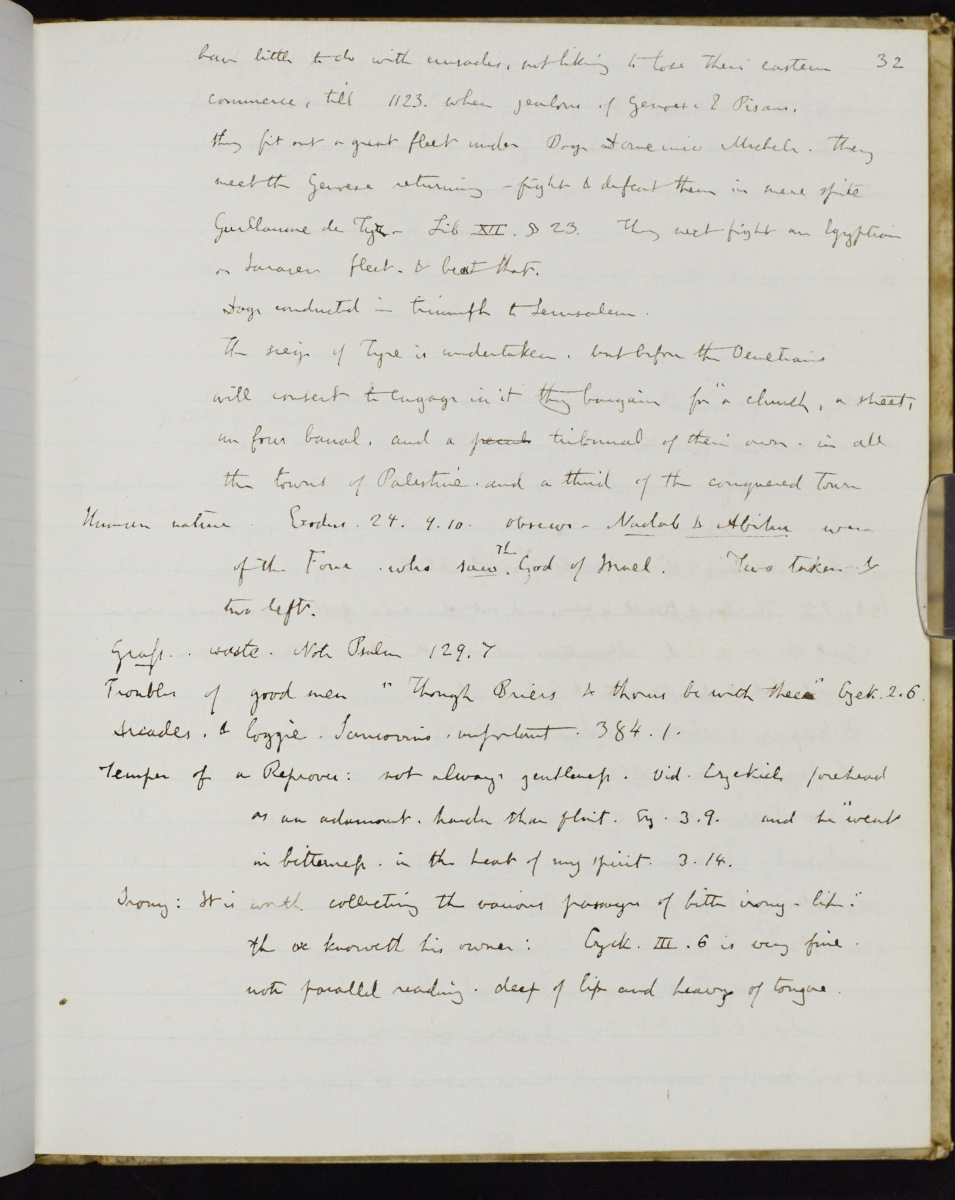 32
have little to do with crusades, not liking to lose their eastern
commerce, till 1123. when jealous of Genoese & Pisans,
they fit out a great fleet under Doge Domenico Michele. They
meet the Genoese returning - fight & defeat them in mere spite
Guillaume de Tyr - Lib XII. § 23. They next fight an Egyptian
or Saracen fleet. & beat that.
Doge conducted in triumph to Jerusalem.
The siege of Tyre is undertaken. but before the Venetians
will consent to engage in it they bargain for "a church, a street,
un four banal, and a tribunal of their own. in all
the towns of Palestine. and a third of the conquered town
Human nature. Exodus. 24. 9.10. observe - Nadab & Abihu were
of the Four. who saw. The God of Israel. Two taken - &
two left.
Grass. waste. Note Psalm 129.7
Troubles of good men "Though Briers & thorns be with thee" Ezek. 2.6.
Arcades. & Loggie. Sansovino. important. 384.1.
Temper of a Reprover: not always gentleness. vid. Ezekiels forehead
as an adamant. harder than flint. Ez. 3.9. and he "went
in bitterness. in the heat of my spirit. 3.14.
Irony: It is worth collecting the various passages of bitter irony - like "
the ox knoweth his owner: Ezek. III. 6 is very fine.
note parallel reading. deep of lip and heavy of tongue.